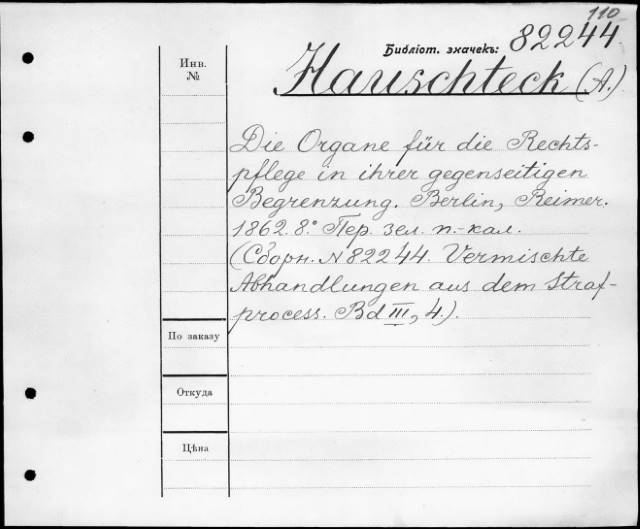 110
Библіот. значекъ: 82244
Инв.
№
Hauschteck (A.)
Die Organe für die Rechts-
pflege in ihrer gegenseitigen
Begrenzung. Berlin, Reimer.
1862. 8.° Пер. зел. п.-кал.
(Сборн. N 82244. Vermischte
Abhandlungen aus dem Straf-
process. Bd III, 4.).
По заказу
Откуда
Цѣна